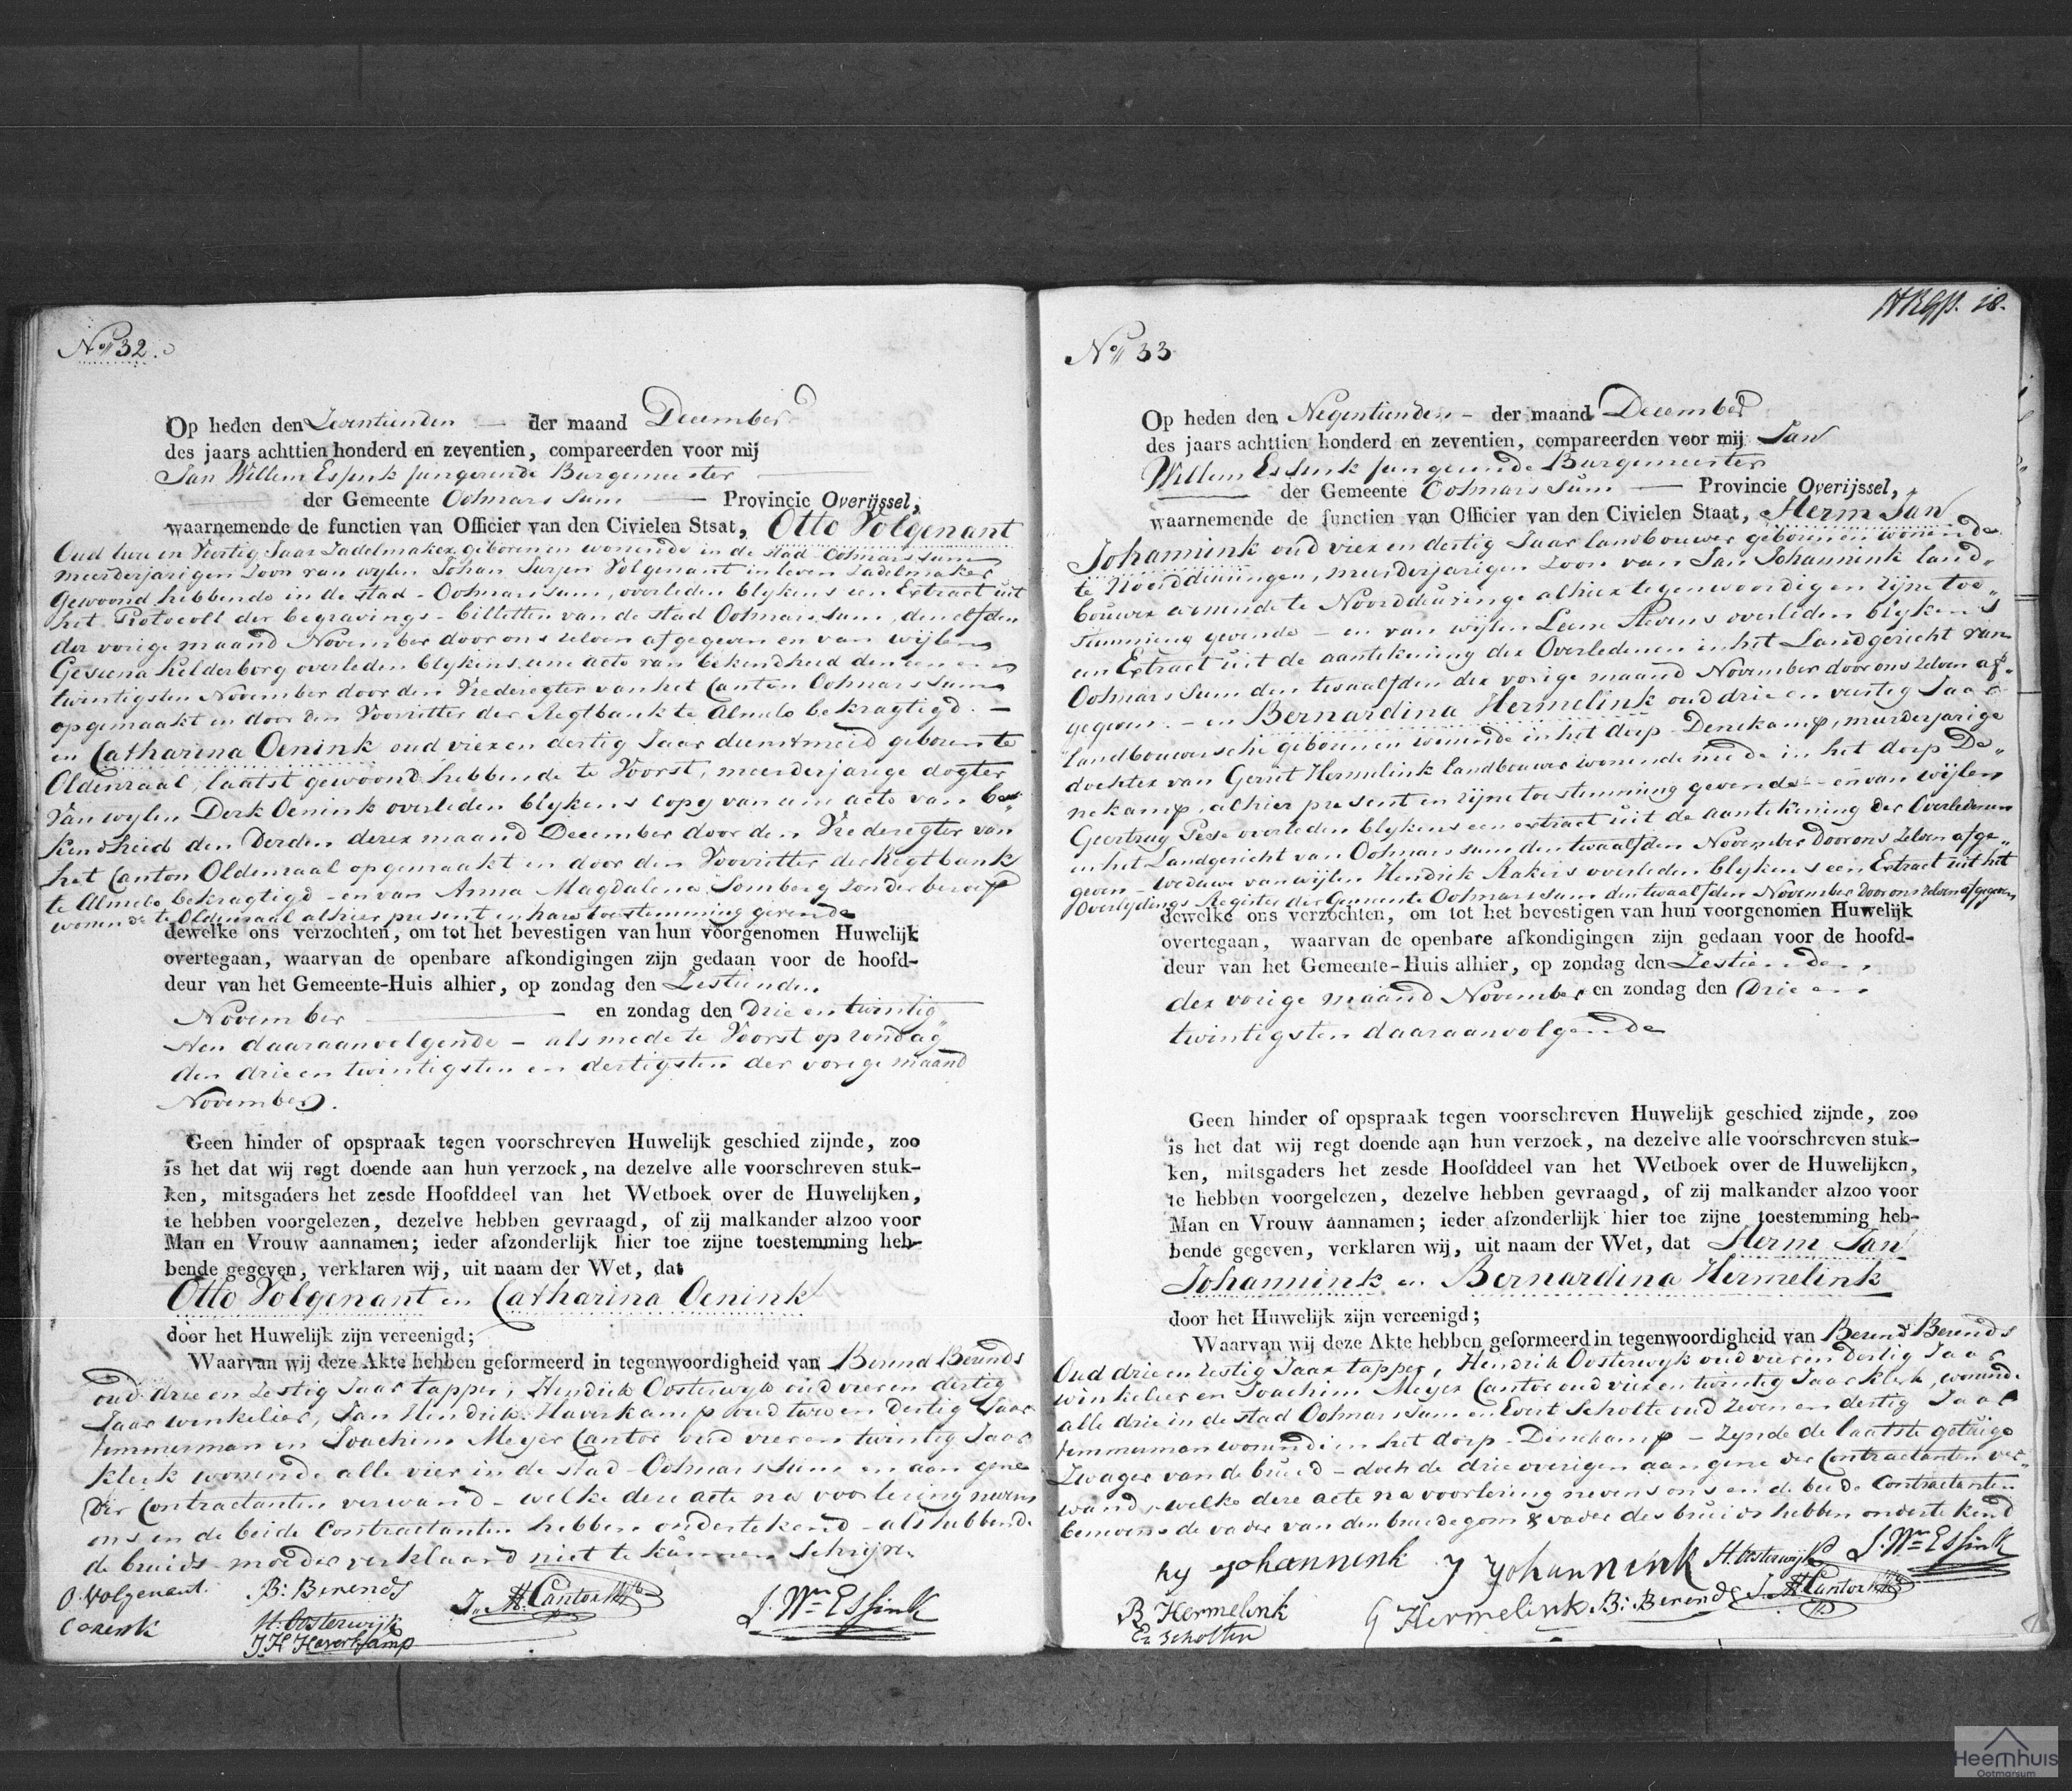 No 32.
Op heden den Zeventienden — der maand December
des jaars achttien honderd en zeventien, compareerden voor mij
Jan Willem Essink fungerende Burgemeester
der Gemeente Ootmarssum — Provincie Overijssel,
waarnemende de functien van Officier van den Civielen Stsat, Otto Volgenant
Oud twee en Veertig Jaar Zadelmaker geboren en wonende in de stad Ootmarssum
meerderjarigen Zoon van wylen Johan Jurjen Volgenant in leven Zadelmaker
Gewoond hebbende in de stad Ootmarssum, overleden blykens een Extract uit
het Protocoll der begravings-billetten van de stad Ootmarssum, den elfden
der vorige maand November door ons zelven afgegeven en van wijlen
Gesiena Kelderborg overleden blykens eene acte van bekendheid den een en
twintigsten November door den Vrederegter van het Canton Ootmarssum
opgemaakt en door den Voorzitter der Regtbank te Almelo bekragtigd. —
en Catharina Oenink oud vier en dertig Jaar dienstmeid geboren te
Oldenzaal, laatst gewoond hebbende te Voorst, meerderjarige dogter
Van wylen Derk Oenink overleden blykens Copy van een acte van be„
kendheid den Derden dezer maand December door den Vrederegter van
het Canton Oldenzaal opgemaakt en door den Voorzitter der Regtbank
te Almelo bekragtigd - en van Anna Magdalena Somberg zonder beroep
wonende te Oldenzaal alhier present en hare toestemming gevende
dewelke ons verzochten, om tot het bevestigen van hun voorgenomen Huwelijk
overtegaan, waarvan de openbare afkondigingen zijn gedaan voor de hoofd-
deur van het Gemeente-Huis alhier, op zondag den Zestienden
November — en zondag den Drie en twintig„
sten daaraanvolgende - als mede te Voorst op zondag
den drie en twintigsten en dertigsten der vorige maand
November.
Geen hinder of opspraak tegen voorschreven Huwelijk geschied zijnde, zoo
is het dat wij regt doende aan hun verzoek, na dezelve alle voorschreven stuk-
ken, mitsgaders het zesde Hoofddeel van het Wetboek over de Huwelijken,
te hebben voorgelezen, dezelve hebben gevraagd, of zij malkander alzoo voor
Man en Vrouw aannamen; ieder afzonderlijk hier toe zijne toestemming heb-
bende gegeven, verklaren wij, uit naam der Wet, dat
Otto Volgenant en Catharina Oenink
door het Huwelijk zijn vereenigd;
Waarvan wij deze Akte hebben geformeerd in tegenwoordigheid van Berend Berends
oud drie en Zestig Jaar tapper, Hendrik Oosterwyk oud vier en dertig
Jaar winkelier, Jan Hendrik Haverkamp oud twee en Dertig Jaar
timmerman en Joachim Meyer Cantor oud vier en twintig Jaar
klerk wonende alle vier in de stad Ootmarssum en aan gene
der Contractanten verwand - welke deze acte na voorlezing nevens
ons en de beide Contractanten hebben ondertekend - als hebbende
de bruids moeder verklaard niet te kunnen schrijven
O. Volgenant. B: Berends
J. M. Cantor
J. Wm Essink
C oenink
H: Oosterwijk
J H Haverkamp
HRgp. 18.
No 33
Op heden den Negentienden - der maand December
des jaars achttien honderd en zeventien, compareerden voor mij Jan
Willem Essink fungerende Burgemeester
der Gemeente Ootmarssum — Provincie Overijssel,
waarnemende de functien van Officier van den Civielen Staat, Herm Jan
Johannink oud vier en dertig Jaar landbouwer geboren en wonende
te Noorddeuningen, meerderjarigen Zoon van Jan Johannink land„
bouwer wonende te Noorddeuringe alhier tegenwoordig en zijne toe„
stemming gevende - en van wijlen Leene Stevens overleden blykens
een Extract uit de aantekening der Overledenen in het Landgericht van
Ootmarssum den twaalfden der vorige maand November door ons zelven af„
gegeven. - en Bernardina Hermelink oud drie en veertig Jaar
Landbouwersche geboren en wonende in het dorp Denekamp, meerderjarige
dochter van Gerrit Hermelink landbouwer wonende mede in het dorp De„
nekamp, alhier present en zijne toestemming gevende - en van wijlen
Geertrug Peese overleden blykens een extract uit de aantekening der Overledenen
in het Landgericht van Ootmarssum den twaalfden November Door ons zelven afge„
geven - weduwe van wijlen Hendrik Rakers overleden blykens een Extract uit het
Overlydings Register der Gemeente Ootmarssum den twaalfden November door ons zelven afgegeven
dewelke ons verzochten, om tot het bevestigen van hun voorgenomen Huwelijk
overtegaan, waarvan de openbare afkondigingen zijn gedaan voor de hoofd-
deur van het Gemeente-Huis alhier, op zondag den Zestienden
der vorige maand November en zondag den Drie en
twintigsten daaraanvolgende
Geen hinder of opspraak tegen voorschreven Huwelijk geschied zijnde, zoo
is het dat wij regt doende aan hun verzoek, na dezelve alle voorschreven stuk-
ken, mitsgaders het zesde Hoofddeel van het Wetboek over de Huwelijken,
te hebben voorgelezen, dezelve hebben gevraagd, of zij malkander alzoo voor
Man en Vrouw aannamen; ieder afzonderlijk hier toe zijne toestemming heb-
bende gegeven, verklaren wij, uit naam der Wet, dat Herm Jan
Johannink en Bernardina Hermelink
door het Huwelijk zijn vereenigd;
Waarvan wij deze Akte hebben geformeerd in tegenwoordigheid van Berend Berends
Oud drie en zestig Jaar tapper, Hendrik Oosterwyk oud vier en Dertig Jaar
winkelier en Joachim Meyer Cantor oud vier en twintig Jaar klerk, wonende
alle drie in de stad Ootmarssum en Evert Scholte oud zeven en dertig Jaar
timmerman wonende in het dorp Denekamp - zynde de laatste getuige
Zwager van de bruid - doch de drie overigen aan gene der Contractanten ver„
wand - welke deze acte na voorlezing nevens ons en de beide Contractanten
benevens de vader van den bruidegom & vader des bruids hebben ondertekend
hj Johannink J Johannink H. Oosterwijk J. Wm Essink
B Hermelink G Hermelink B: Berends J. M. Cantor
Ev Scholten
Heemhuis
Ootmarsum